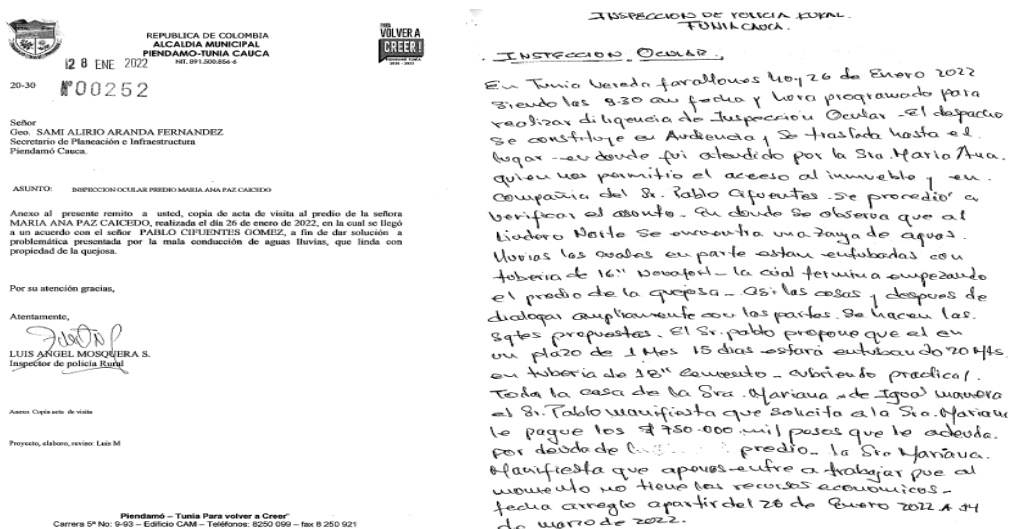 REPUBLICA DE COLOMBIA
ALCALDIA MUNICIPAL
PIENDAMO-TUNIA CAUCA
NIT. 891.500.856-6
VOLVER A
CREER!
28 ENE 2022
20-30 Nº 00252
Señor
Geo. SAMI ALIRIO ARANDA FERNANDEZ
Secretario de Planeación e Infraestructura
Piendamó Cauca.
ASUNTO: INSPECCION OCULAR PREDIO MARIA ANA PAZ CAICEDO
Anexo al presente remito a usted, copia de acta de visita al predio de la señora
MARIA ANA PAZ CAICEDO, realizada el día 26 de enero de 2022, en la cual se llegó
a un acuerdo con el señor PABLO CIFUENTES GOMEZ, a fin de dar solución a
problemática presentada por la mala conducción de aguas lluvias, que linda con
propiedad de la quejosa.
Por su atención gracias,
Atentamente,
LUIS ANGEL MOSQUERA S.
Inspector de policía Rural
Anexo. Copia acta de visita
Proyecto, elaboro, reviso: Luis M
Piendamó – Tunia Para volver a Creer"
Carrera 5ª No: 9-93 – Edificio CAM – Teléfonos: 8250 099 – fax 8 250 921
INSPECCION DE POLICIA RURAL.
TUNIA CAUCA.
INSPECCION OCULAR,
En Tunia Vereda farallones Hoy 26 de Enero 2022
siendo las 9:30 am fecha y hora programado para
realizar diligencia de Inspección Ocular - El despacho
se constituye en Audiencia y se traslada hasta el
lugar - en donde fui atendido por la Sra. Maria Ana.
quien nos permitio el acceso al inmueble y en
compañia del Sr. Pablo Cifuentes - se procedió a
verificar el asunto. En donde se observa que al
Lindero Norte se encuentra una zanja de aguas.
lluvias los cuales en parte estan entubadas con
tuberia de 16" Novafort - la cual termina empezando
el predio de la quejosa - asi las cosas y despues de
dialogar ampliamente con las partes. Se hacen las.
sgtes propuestas. El Sr. pablo propone que el en
un plazo de 1 Mes 15 dias estará entubando 20 Mts.
en tuberia de 18" cemento - cubriendo practical.
Toda la casa de la Sra. Mariana - de Igual manera
el Sr. Pablo manifiesta que solicita a la Sra. Mariana
le pague los $750.000 mil pesos que le adeuda.
por deuda de predio - la Sra Mariana.
Manifiesta que apenas entre a trabajar pue al
momento no tiene los recursos economicos -
fecha arreglo apartir del 26 de Enero 2022 A 14
de marzo de 2022.